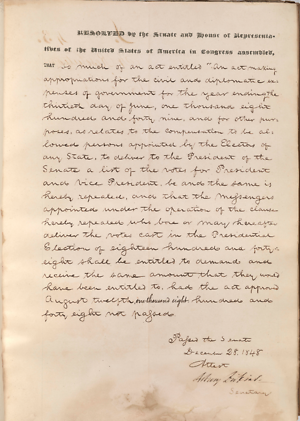 RESOLVED by the Senate and House of Representa-
tives of the United States of America in Congress assembled,
THAT So much of an act entitled "An act making
appropriations for the civil and diplomatic ex-
penses of government for the year ending the
thirtieth day of June, one thousand eight
hundred and forty nine, and for other pur-
poses, as relates to the compensation to be al-
lowed persons appointed by the Electors of
any State, to deliver to the President of the
Senate a list of the votes for President
and Vice President, be and the same is
hereby repealed, and that the Messengers
appointed under the operation of the clause
hereby repealed who, have or may hereafter
deliver the votes cast in the Presidential
Election of eighteen hundred and forty-
eight shall be entitled to demand and
receive the same amount that they would
have been entitled to, had the act approved
August twelfth, one thousand eight hundred and
forty eight not passed.
Passed the Senate
December 28. 1848
Attest
Secretary